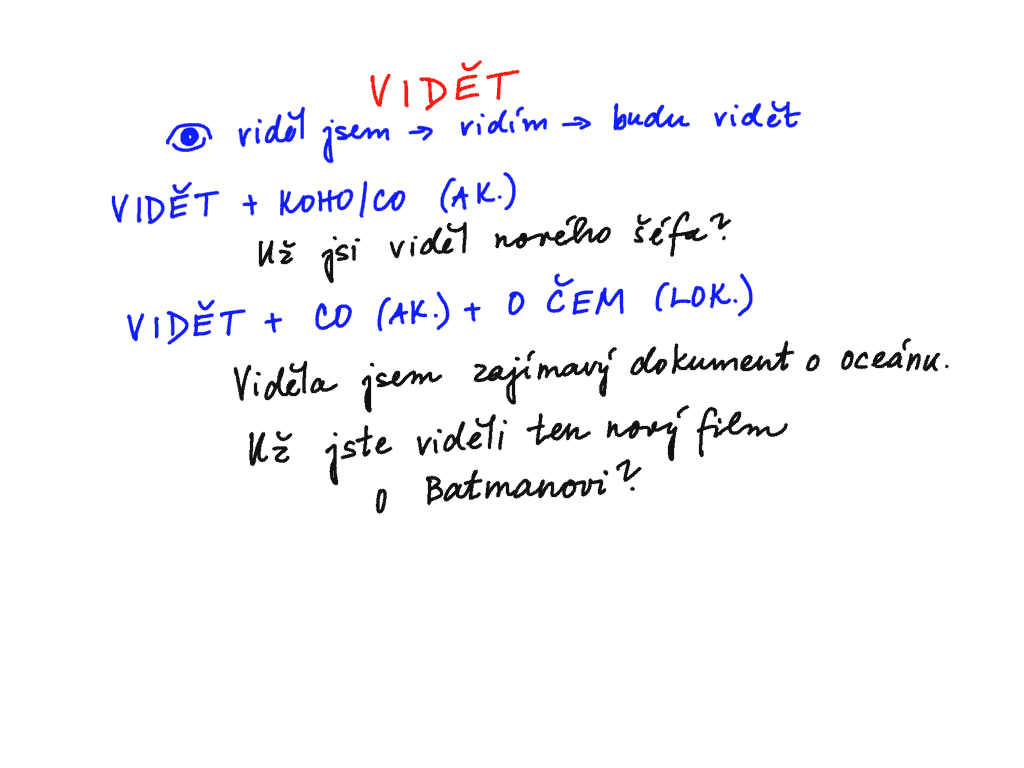 VIDĚT
viděl jsem → vidím → budu vidět
VIDĚT + KOHO/CO (AK.)
Už jsi viděl nového šéfa?
VIDĚT + CO (AK.) + O ČEM (LOK.)
Viděla jsem zajímavý dokument o oceánu.
Už jste viděli ten nový film
o Batmanovi?